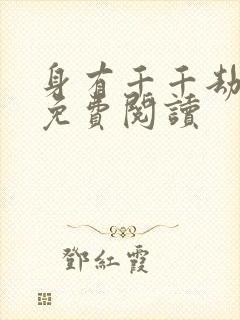 身有千千劫
免費閱讀
鄧紅霞